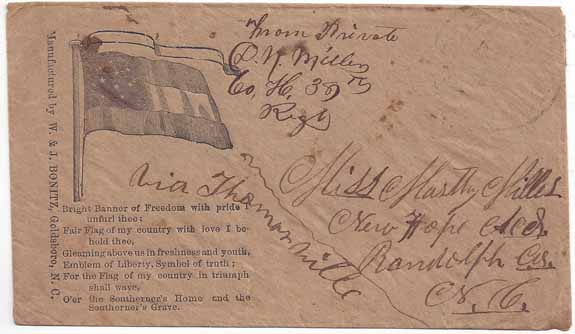 From Private
D. Y. Miller
Co, H, 38th
Regt
Manufactured by W. & J. BONITZ, Goldsboro, N. C.
Bright Banner of Freedom with pride I
unfurl thee;
Fair Flag of my country with love I be-
hold thee,
Gleaming above us in freshness and youth,
Emblem of Liberty, Symbol of truth;
For the Flag of my country in triumph
shall wave,
O'er the Southerner's Home and the
Southerner's Grave.
via Thomasville
Miss Martha Miller
New Hope
Randolph Co.
N. C.